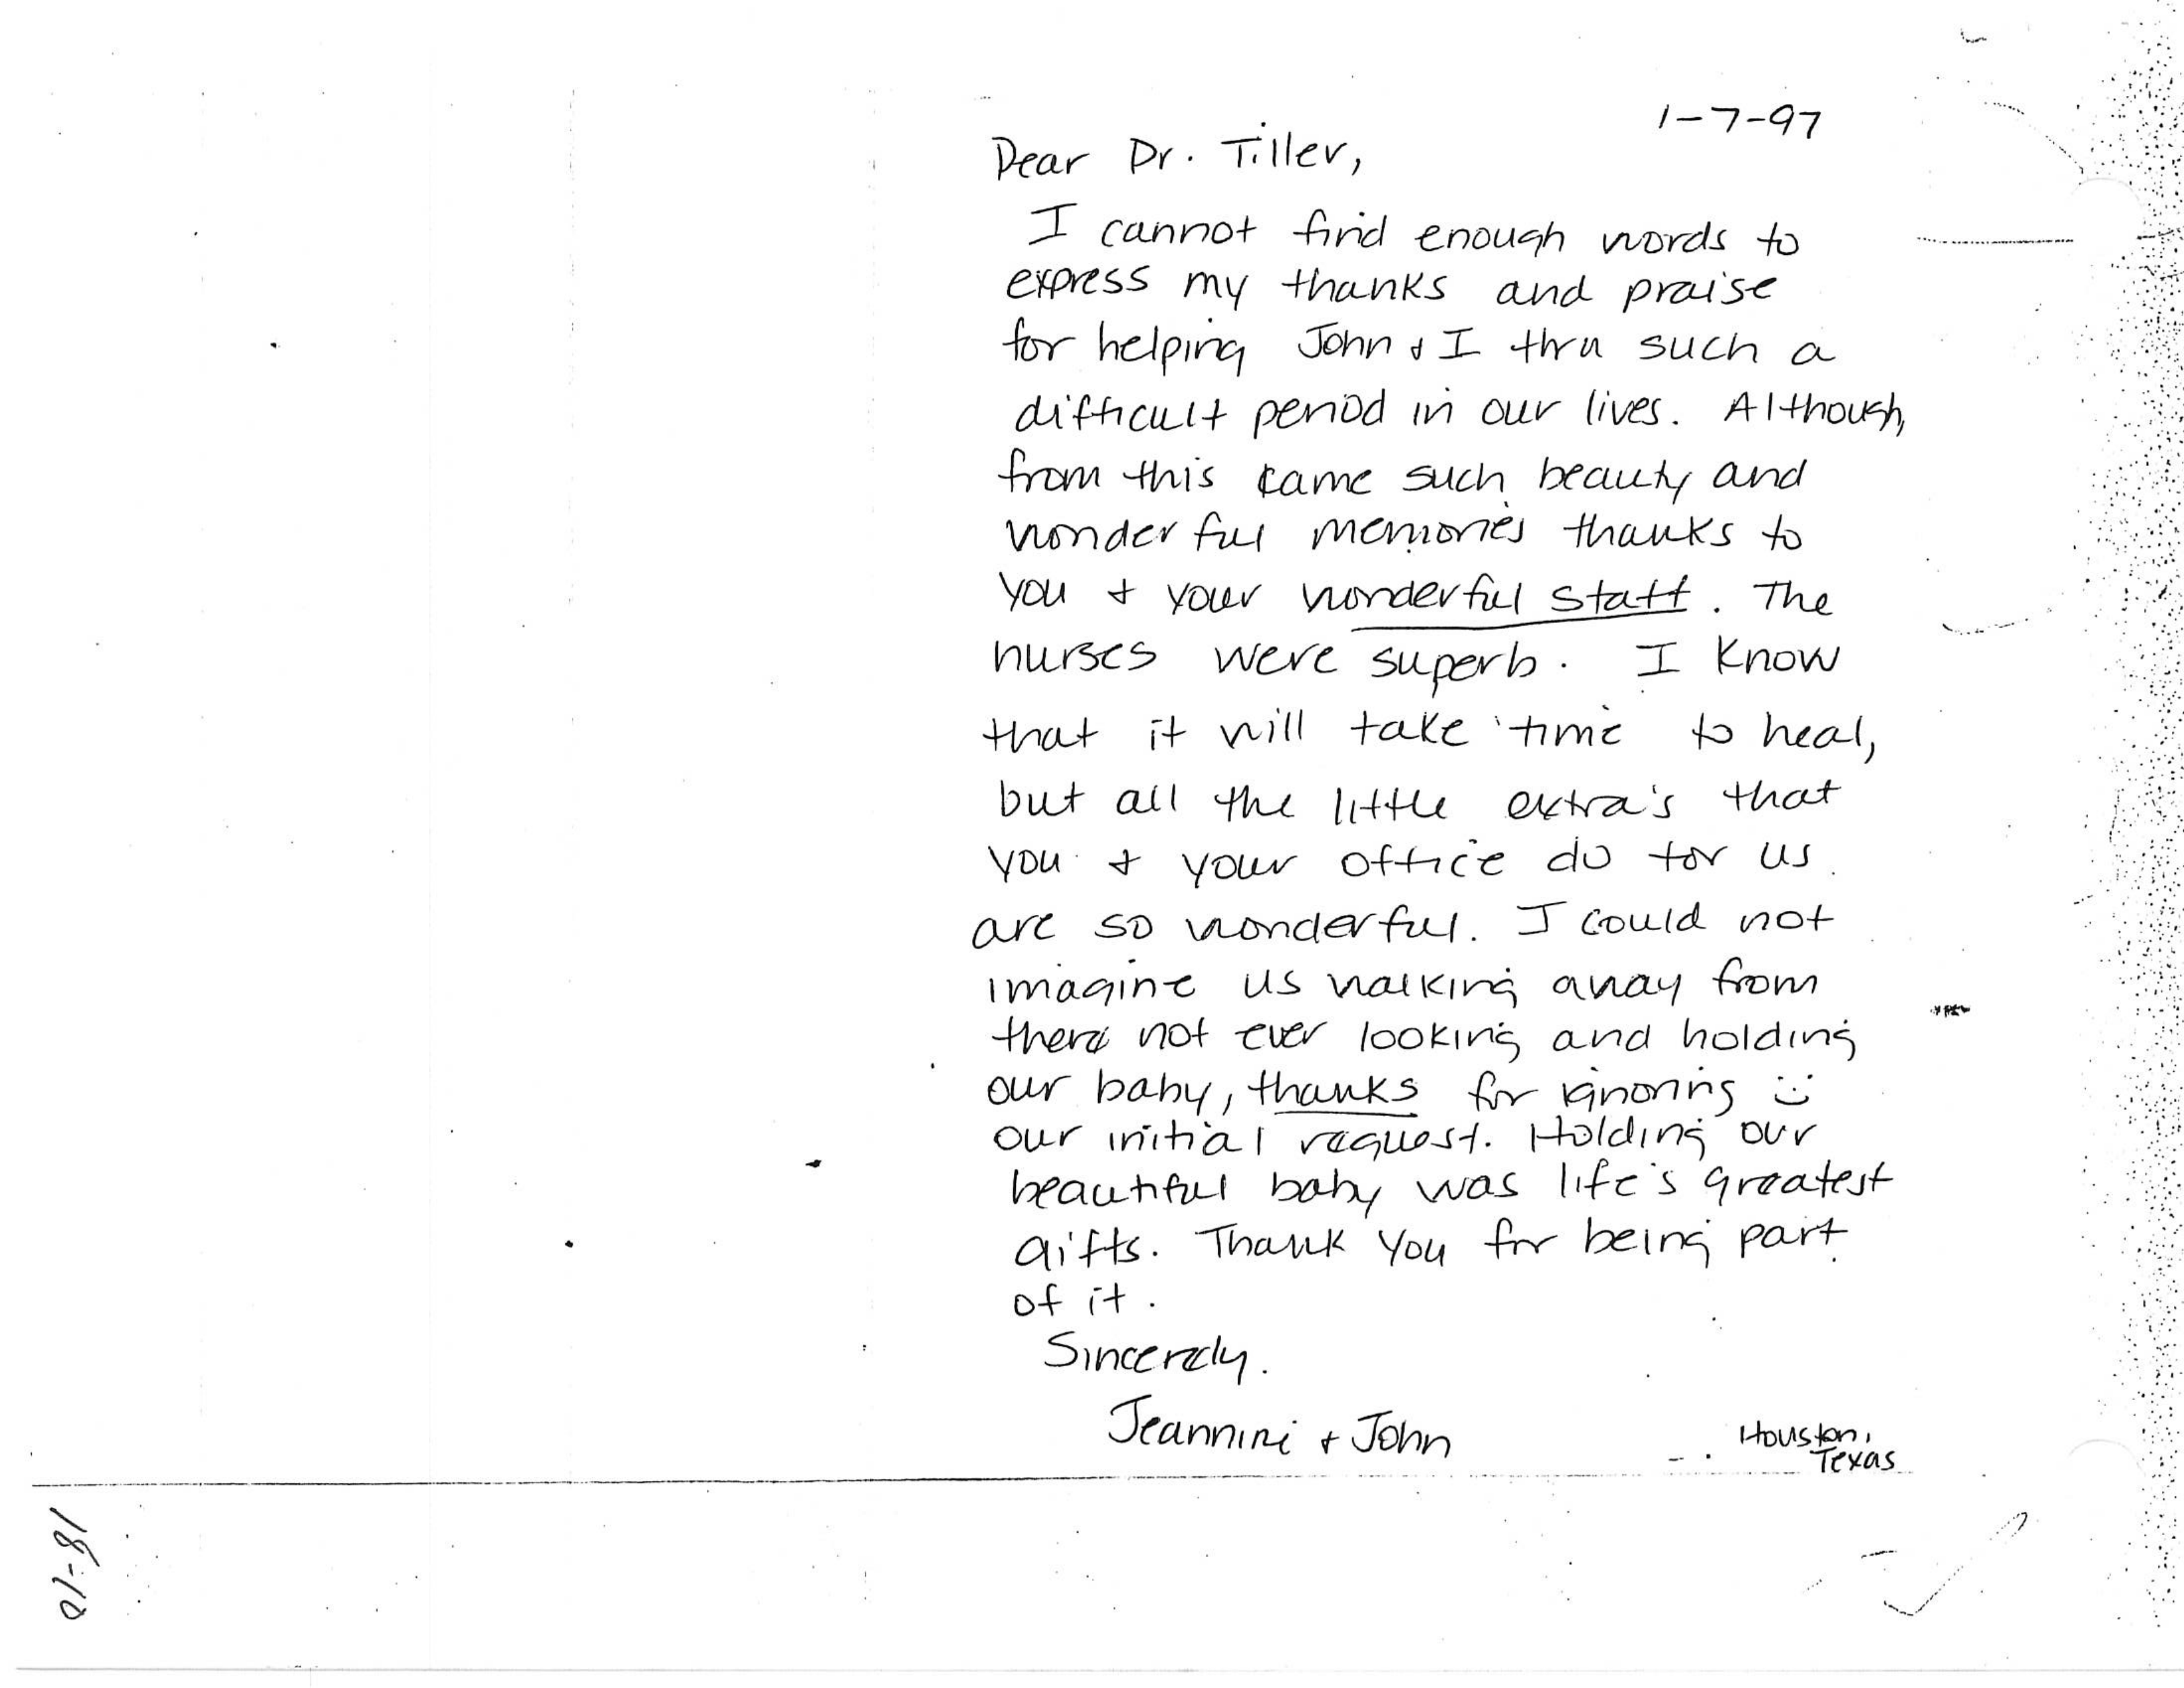 1-7-97
Dear Dr. Tiller,
I cannot find enough words to
express my thanks and praise
for helping John & I thru such a
difficult period in our lives. Although,
from this came such beauty and
wonderful memories thanks to
you & your wonderful staff. The
nurses were superb. I know
that it will take time to heal,
but all the little extra's that
you & your office do for us
are so wonderful. I could not
imagine us walking away from
there not ever looking and holding
our baby, thanks for ignoring :)
our initial request. Holding our
beautiful baby was life's greatest
gifts. Thank you for being part
of it.
Sincerely.
Jeannine & John
Houston,
Texas
18-10